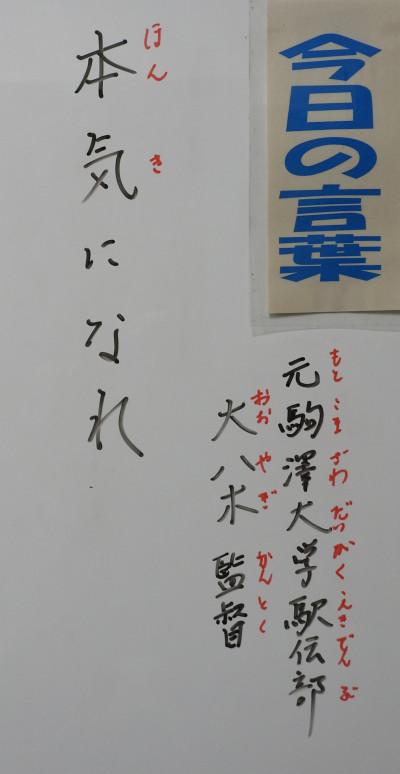 今日の言葉
もと こま ざわ だい がく えき でん ぶ
元駒澤大学駅伝部
おお や ぎ かん とく
大八木 監督
ほん き
本気になれ